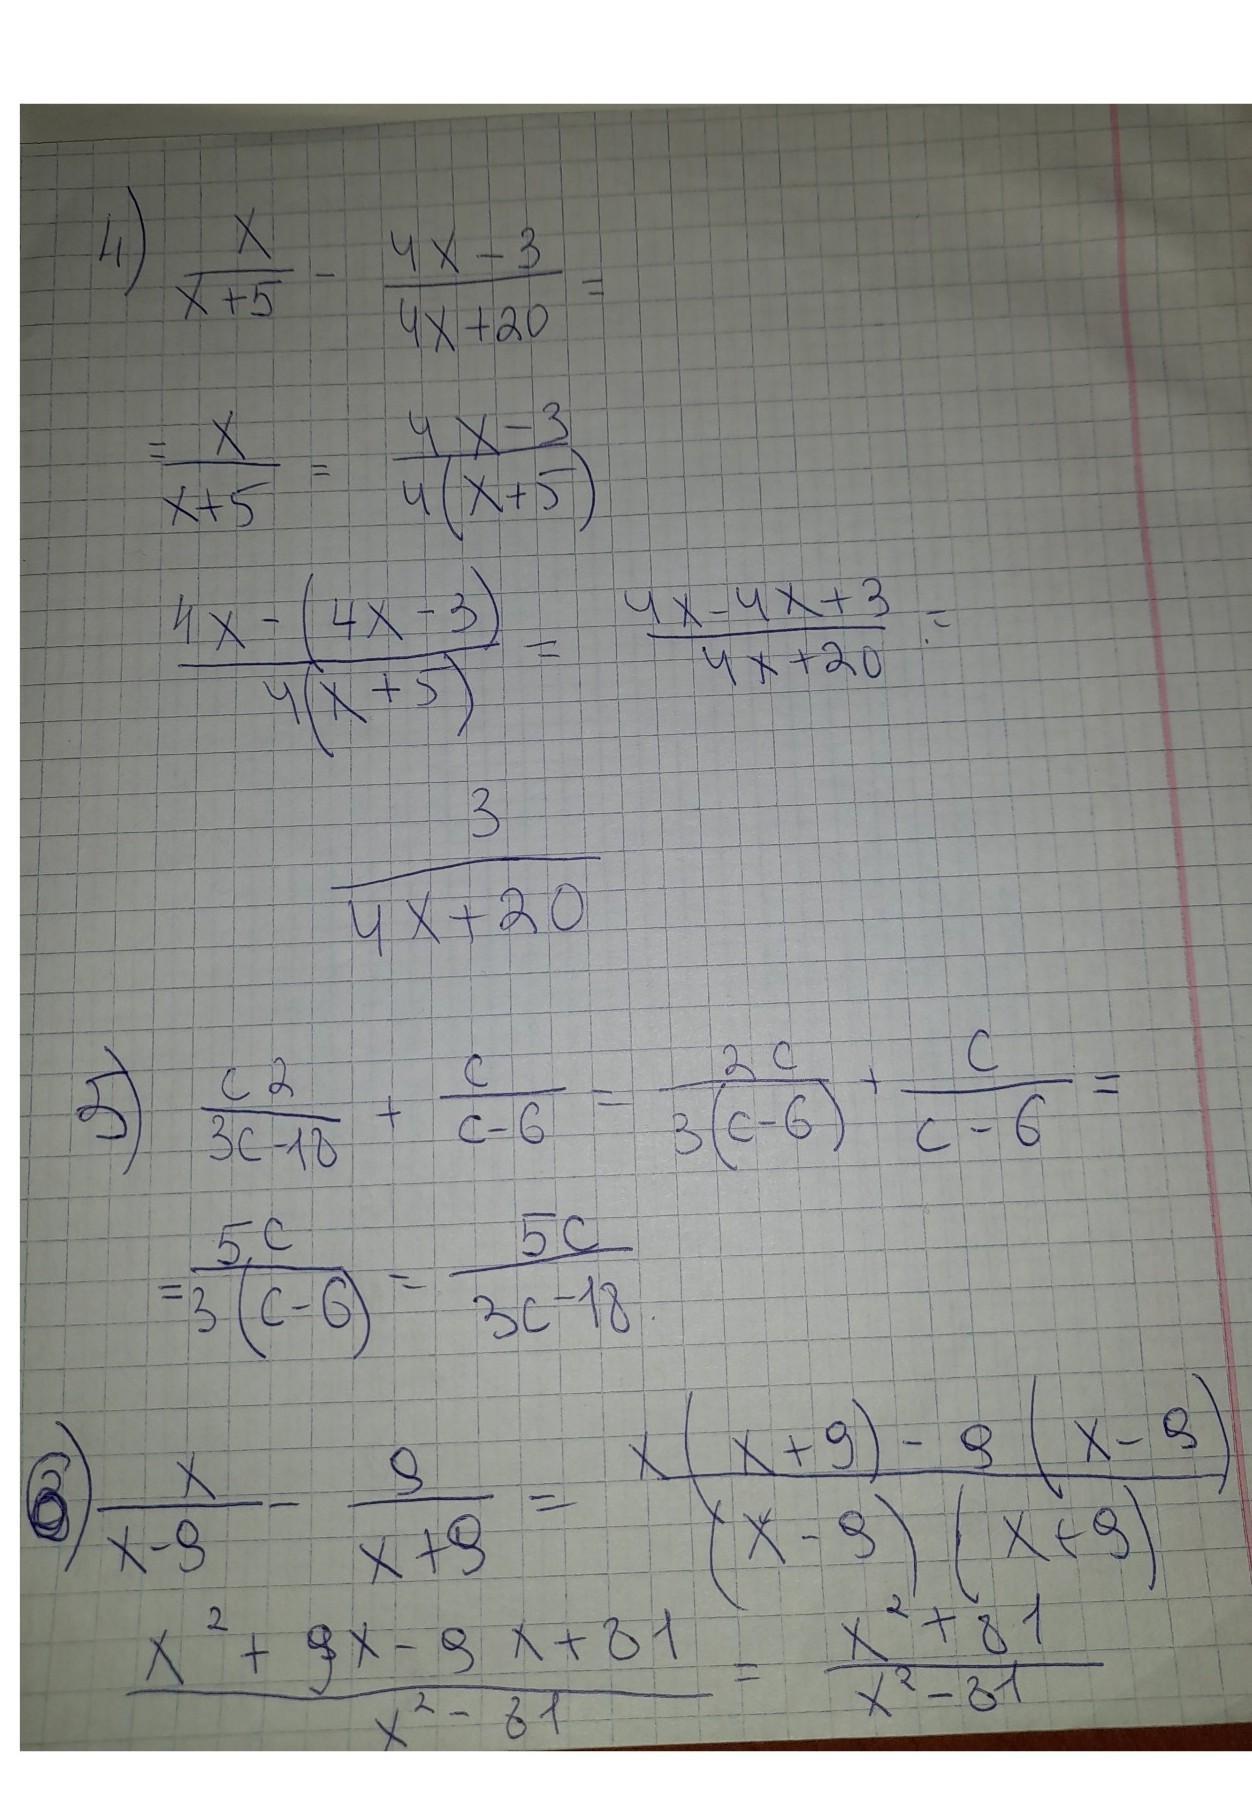 4) x/(x+5) - (4x-3)/(4x+20) =
= x/(x+5) = (4x-3)/(4(x+5))
(4x-(4x-3))/(4(x+5)) = (4x-4x+3)/(4x+20) =
3/(4x+20)
5) c2/(3c-18) + c/(c-6) = 2c/(3(c-6)) + c/(c-6) =
= 5c/(3(c-6)) = 5c/(3c-18).
6) x/(x-9) - 9/(x+9) = (x(x+9)-9(x-9))/((x-9)(x+9))
(x²+9x-9x+81)/(x²-81) = (x²+81)/(x²-81)